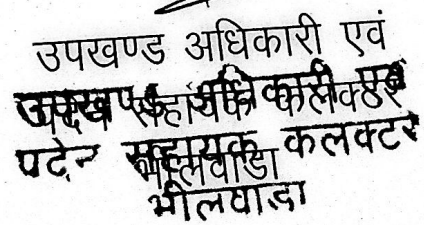 उपखण्ड अधिकारी एवं
उपखण्ड अधिकारी एवं
पदेन सहायक कलक्टर
पदेन सहायक कलक्टर
भीलवाडा
भीलवाडा